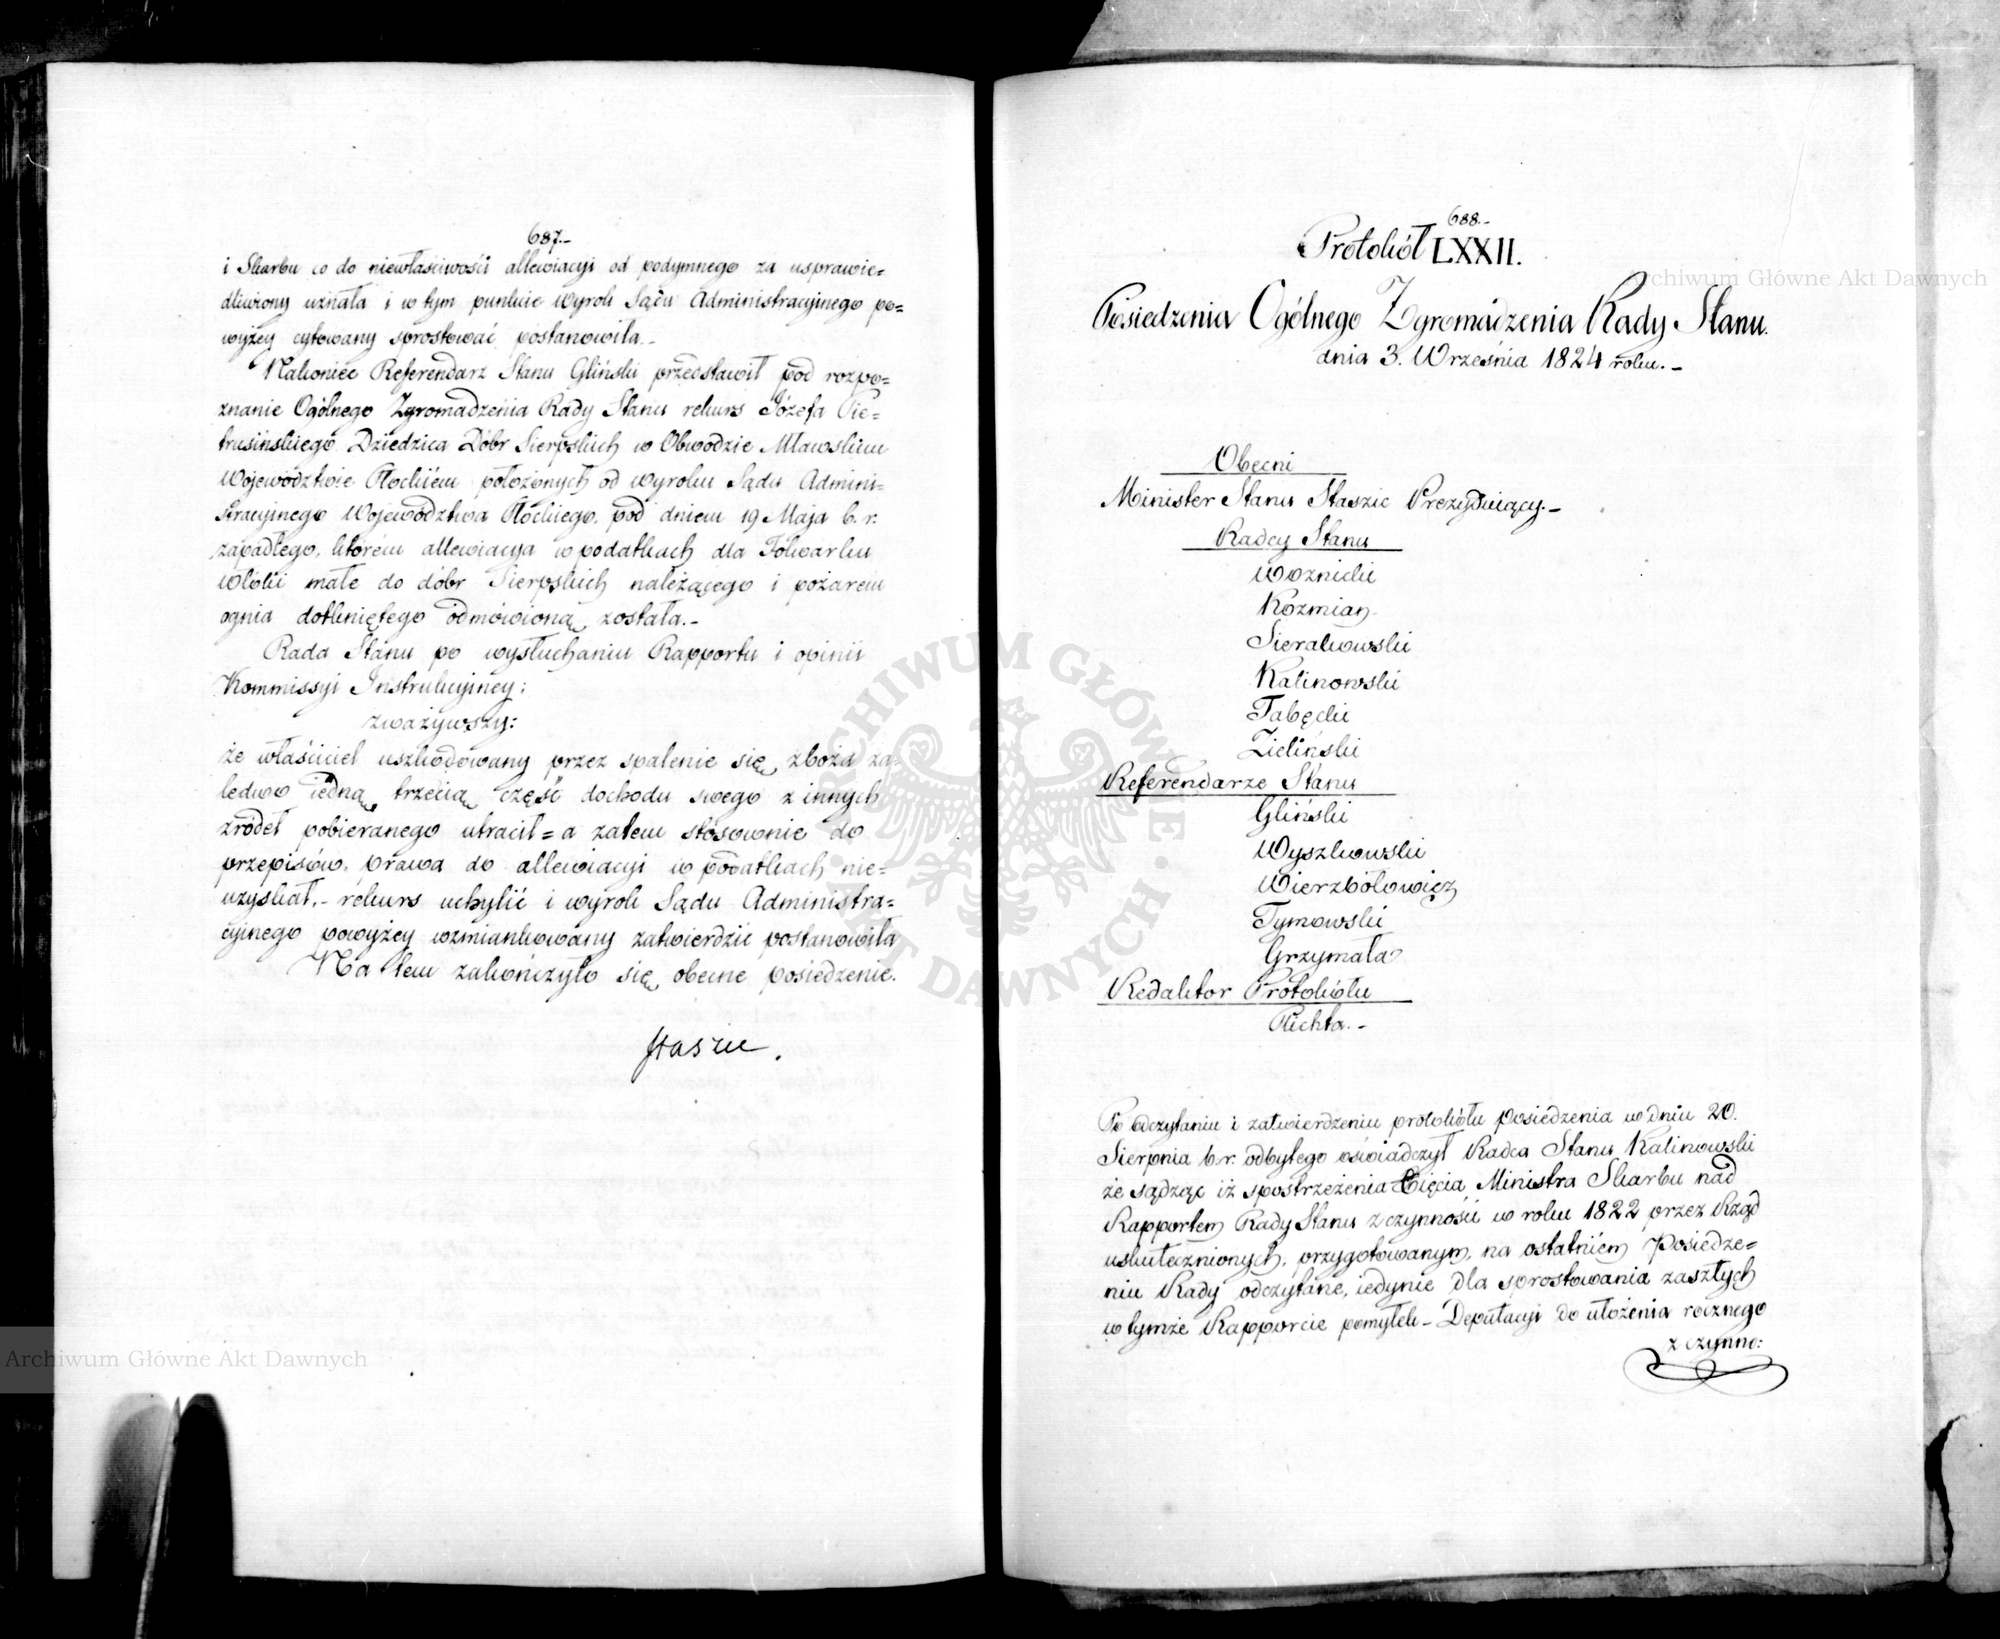 687.-
i Skarbu co do niewłaściwości allewiacyi od podymnego za usprawie=
dliwiony uznała i w tym punkcie wyrok Sądu Administracyjnego po=
wyżey cytowany sprostować postanowiła.-
Nakoniec Referendarz Stanu Gliński przedstawił pod rozpo=
znanie Ogólnego Zgromadzenia Rady Stanu rekurs Józefa Pie=
trusińskiego Dziedzica Dóbr Sierpskich w Obwodzie Mławskim
Województwie Płockiém położonych od wyroku Sądu Admini=
stracyjnego Województwa Płockiego, pod dniem 19 Maja b. r.
zapadłego, którém allewiacya w podatkach dla Folwarku
Włóki małe do dóbr Sierpskich należącego i pożarem
ognia dotkniętego odmówioną została.-
Rada Stanu po wysłuchaniu Rapportu i opinii
Kommissyi Instrukcyiney;
zważywszy:
że właściciel uszkodowany przez spalenie się zboża za=
ledwo iedną trzecią część dochodu swego z innych
źródeł pobieranego utracił = a zatem stósownie do
przepisów, prawa do allewiacyi w podatkach nie=
uzyskał.- rekurs uchylić i wyrok Sądu Administra=
cyjnego powyżey wzmiankowany zatwierdzić postanowiła
Na tem zakończyło się obecne posiedzenie.
Staszic.
688.-
Protokół LXXII.
Posiedzenia Ogólnego Zgromadzenia Rady Stanu.
dnia 3. Września 1824 roku.-
Obecni
Minister Stanu Staszic Prezyduiący.-
Radcy Stanu
Woznicki
Kozmian
Sierakowski
Kalinowski
Tabęcki
Zieliński
Referendarze Stanu
Gliński
Wyszkowski
Wierzbołowicz
Tymowski
Grzymała
Redaktor Protokółu
Plichta.-
Po odczytaniu i zatwierdzeniu protokółu posiedzenia w dniu 20.
Sierpnia b. r. odbytego oświadczył Radca Stanu Kalinowski
że sądząc iż spostrzeżenia Xięcia Ministra Skarbu nad
Rapportem Rady Stanu z czynności w roku 1822 przez Rząd
uskutecznionych, przygotowanym, na ostatniem Posiedze=
niu Rady odczytane, iedynie dla sprostowania zaszłych
w tymże Rapporcie pomyłek - Deputacyi do ułożenia rocznego
z czynno:
Archiwum Główne Akt Dawnych
Archiwum Główne Akt Dawnych
ARCHIWUM GŁÓWNE AKT DAWNYCH